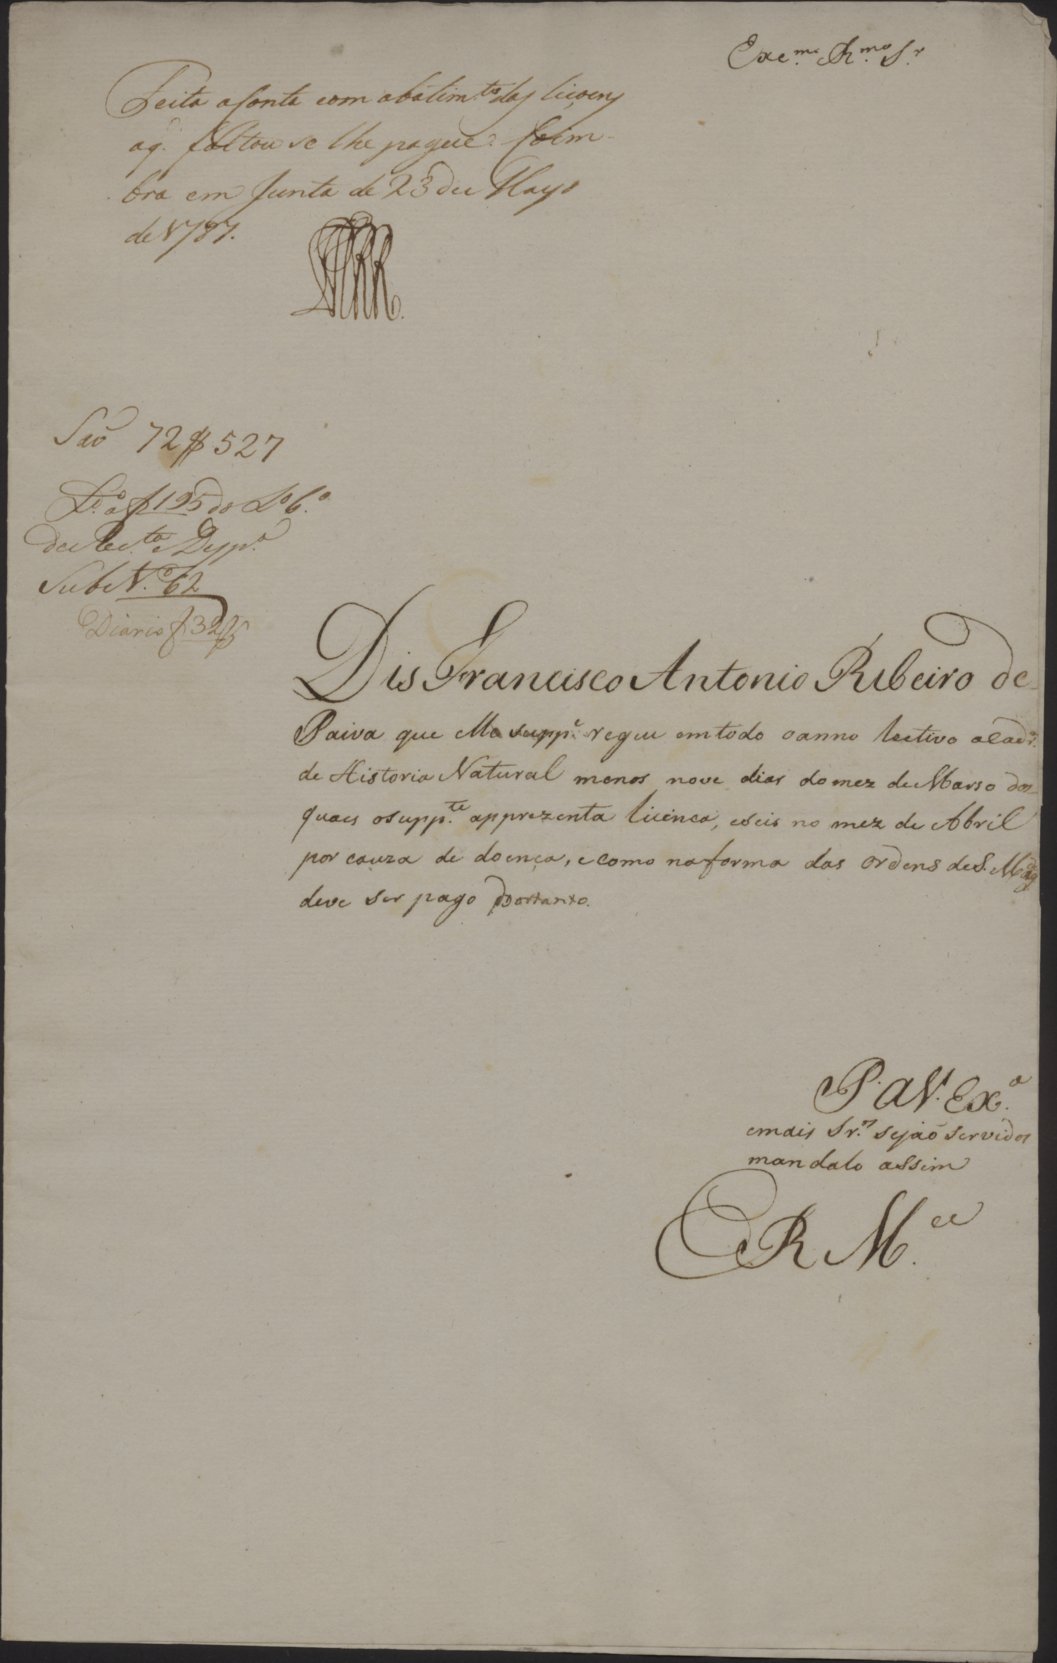 Exc.mo e R.mo S.r
Feita a Conta com abatim.to das liçoens
a q. faltou se lhe pague. Coim-
bra em Junta de 23 de Mayo
de 1787.
Saõ 72$527
L.o a f 195 do L.o 6.o
de Rec.ta e Desp.a
Sub N.o 62
Diario f 32
Dis Francisco Antonio Ribeiro de
Paiva que elle supp.e regeu em todo o anno lectivo a cadr.a
de Historia Natural menos nove dias do mez de Marso dos
quaes o supp.te apprezenta licença, e seis no mez de Abril
por cauza de doença, e como na forma das ordens de S. Mag.de
deve ser pago portanto.
P. a V. Ex.a
e mais Sr.s sejaõ servidos
mandalo assim
E R M.ce